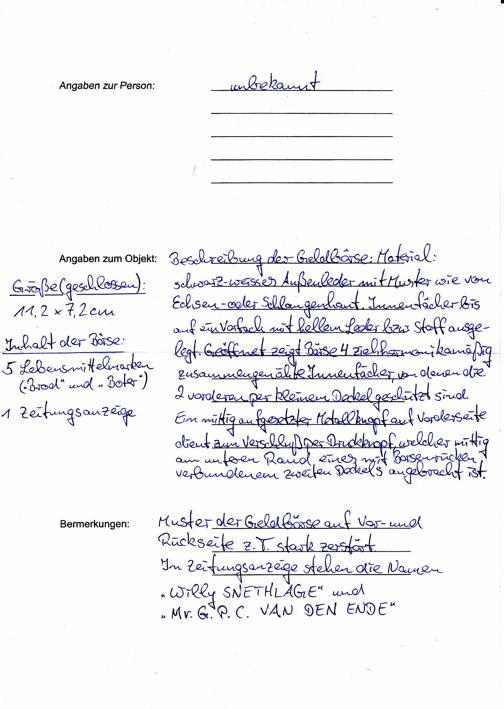 Angaben zur Person: unbekannt
Angaben zum Objekt: Beschreibung der Geldbörse: Material:
schwarz-weisses Außenleder mit Muster wie von
Echsen- oder Schlangenhaut. Innenfächer bis
auf ein Vorfach mit hellem Leder bzw Stoff ausge-
legt. Geöffnet zeigt Börse 4 ziehharmonikamäßig
zusammengenähte Innenfächer, von denen die
2 vorderen per kleinem Deckel geschützt sind
Ein mittig aufgesetzter Metallknopf auf Vorderseite
dient zum Verschluß per Druckknopf, welcher mittig
am unteren Rand eines mit Börsenrücken
verbundenem zweiten Deckels angebracht ist.
Größe (geschlossen):
11,2 x 7,2 cm
Inhalt der Börse:
5 Lebensmittelmarken
("Brood" und "Boter")
1 Zeitungsanzeige
Bermerkungen: Muster der Geldbörse auf Vor- und
Rückseite z.T. stark zerstört.
In Zeitungsanzeige stehen die Namen
„Willy SNETHLAGE" und
„Mr. G. P. C. VAN DEN ENDE"